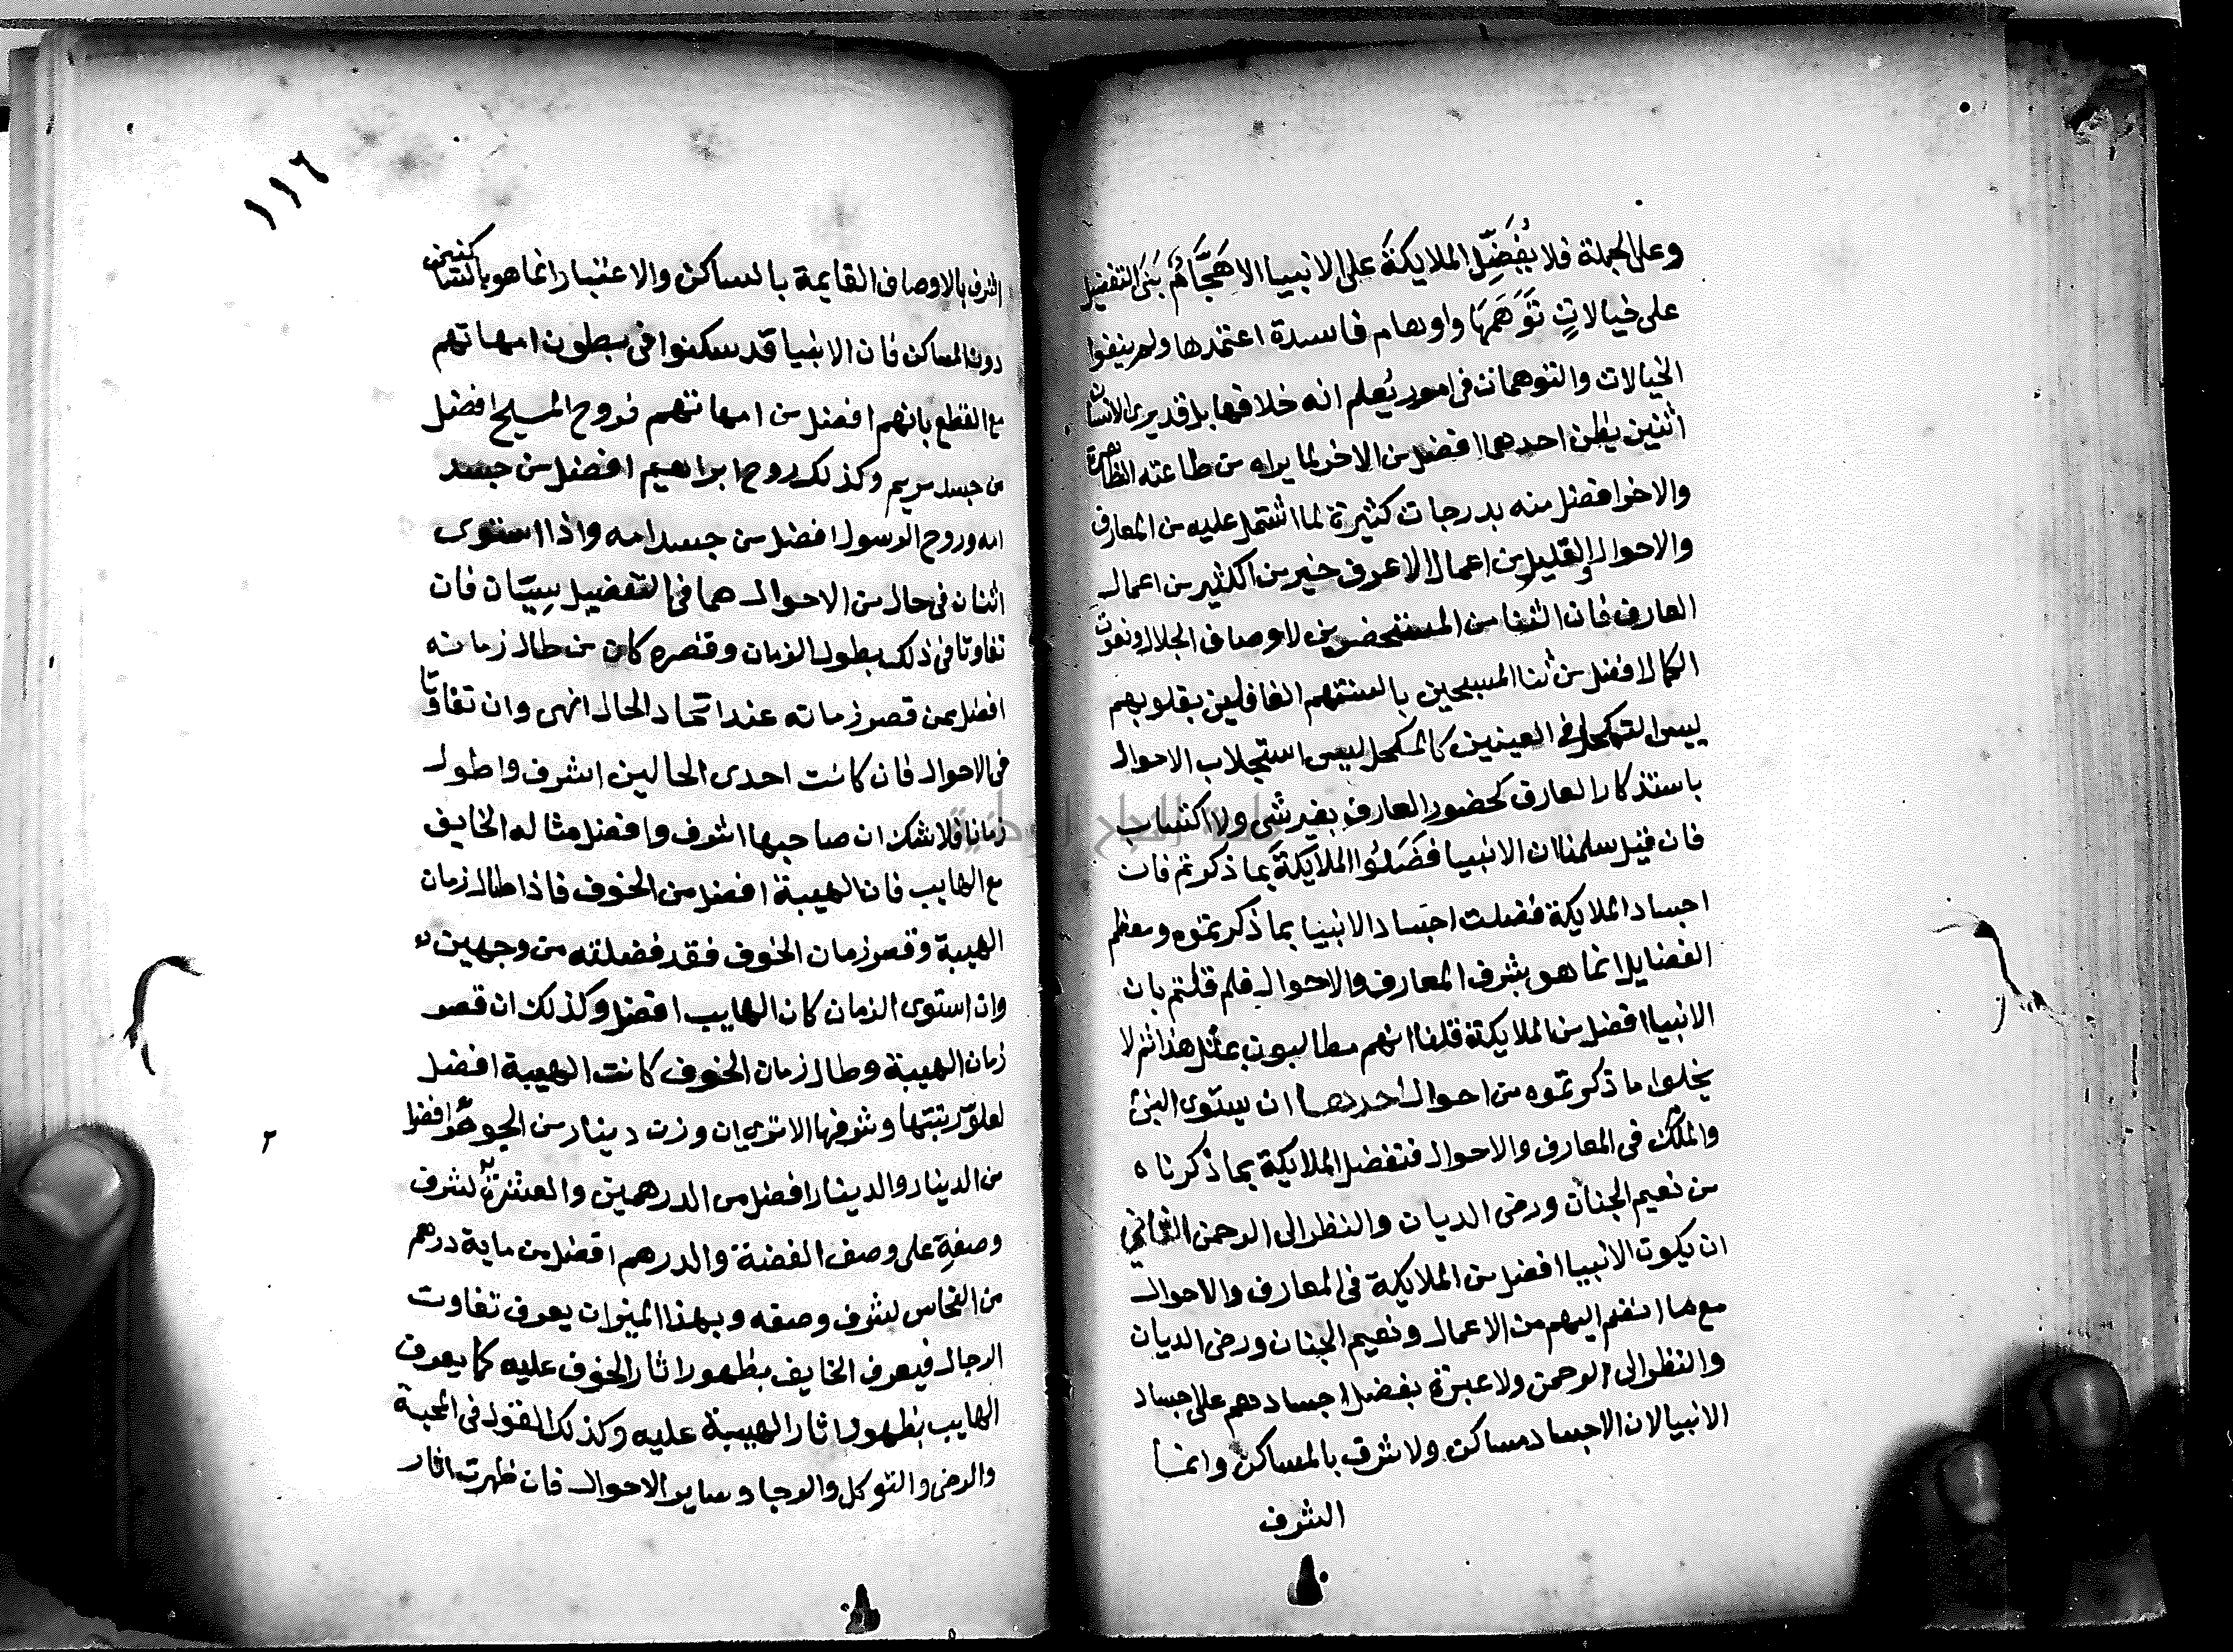 وعلى الجملة فلا يُفَضِّل الملايكةَ على الانبيا الا هَجَّامُ بَنَى التفضيل
على خيالاتٍ تَوَهَمَهَا واوهام فاسدة اعتمدها ولم ينفوا
الخيالات والتوهمات في امور يُعلم انه خلافها بل قد يرى الانسان
اثنين يظن احدهما افضل من الاخر لما يراه من طاعته الظاهرة
والاخر افضل منه بدرجات كثيرة لما اشتمل عليه من المعارف
والاحوال والقليل من اعمال الاعرف خير من الكثير من اعمال
العارف فان الثنا من المستحضرين لاوصاف الجلال ونعوت
الكمال افضل من ثنا المسبحين بالسنتهم الغافلين بقلوبهم
ليس التكحل في العينين كالكحل ليس استجلاب الاحوال
باستذكار العارف كحضور العارف بغير شي ولا اكتساب
فان قيل سلمنا ان الانبيا فضَلُوا الملايكةَ بما ذكرتم فان
اجساد الملايكة فضلت اجساد الانبيا بما ذكرتموه ومعظم
الفضايل انما هو بشرف المعارف والاحوال فلم قلتم بان
الانبيا افضل من الملايكة قلنا انهم مطالبون بمثل هذا ثم لا
يخلوا ما ذكرتموه من احوال احدها ان يستوى النبي
والملك في المعارف والاحوال فتفضل الملايكة بما ذكرناه
من نعيم الجنان ورضى الديان والنظر الى الرحمن الثاني
ان يكون الانبيا افضل من الملايكة في المعارف والاحوال
مع ما انضم اليهم من الاعمال ونعيم الجنان ورضى الديان
والنظر الى الرحمن ولا عبرة بفضل اجسادهم على اجساد
الانبيا لان الاجساد مساكن ولا شرف بالمساكن وانما
الشرف
١١٦
الشرف بالاوصاف القايمة بالساكن والاعتبار انما هو بالساكنين
دون المساكن فان الانبيا قد سكنوا في بطون امهاتهم
مع القطع بانهم افضل من امهاتهم فروح المسيح افضل
من جسد مريم وكذلك روح ابراهيم افضل من جسد
امه وروح الرسول افضل من جسد امه واذا استوى
اثنان في حال من الاحوال هما في التفضيل سِيّان فان
تفاوتا في ذلك بطول الزمان وقصره كان من طال زمانه
افضل ممن قصر زمانه عند اتحاد الحال انهى وان تفاوتا
في الاحوال فان كانت احدى الحالين اشرف واطول
زمانا فلا شك ان صاحبها اشرف وافضل مثاله الخايف
مع الهايب فان الهيبة افضل من الخوف فاذا طال زمان
الهيبة وقصر زمان الخوف فقد فضلته من وجهين
وان استوى الزمان كان الهايب افضل وكذلك ان قصر
زمان الهيبة وطال زمان الخوف كانت الهيبة افضل
لعلو رتبتها وشرفها الا ترى ان وزن دينار من الجوهر افضل
من الدينار والدينار افضل من الدرهمين والعشرة لشرف
وصفهِ على وصف الفضة والدرهم افضل من ماية درهم
من النحاس لشرف وصفه وبهذا الميزان يعرف تفاوت
الرجال فيعرف الخايف بظهور اثار الخوف عليه كما يعرف
الهايب بظهور اثار الهيبة عليه وكذلك القول في المحبة
والرضى والتوكل والرجا وساير الاحوال فان ظهرت اثار